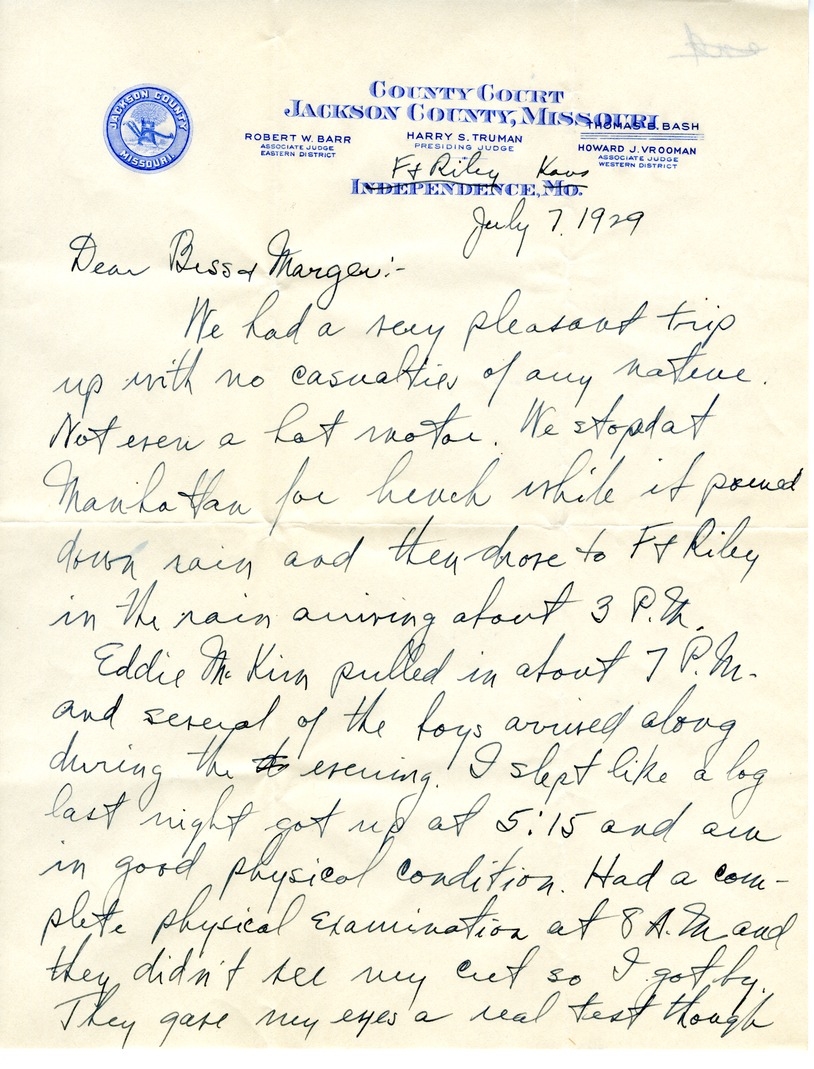 COUNTY COURT
JACKSON COUNTY, MISSOURI
JACKSON COUNTY MISSOURI
THOMAS B. BASH
ROBERT W. BARR
ASSOCIATE JUDGE
EASTERN DISTRICT
HARRY S. TRUMAN
PRESIDING JUDGE
HOWARD J. VROOMAN
ASSOCIATE JUDGE
WESTERN DISTRICT
Ft Riley Kans
INDEPENDENCE, MO.
July 7, 1929
Dear Bess & Marger:-
We had a very pleasant trip
up with no casualties of any nature.
Not even a hot motor. We stopd at
Manhattan for lunch while it poured
down rain and then drove to Ft Riley
in the rain arriving about 3 P.M.
Eddie McKim pulled in about 7 P.M.
and several of the boys arrived along
during the evening. I slept like a log
last night got up at 5:15 and am
in good physical condition. Had a com-
plete physical examination at 8 A.M. and
they didn't see my cut so I got by.
They gave my eyes a real test though